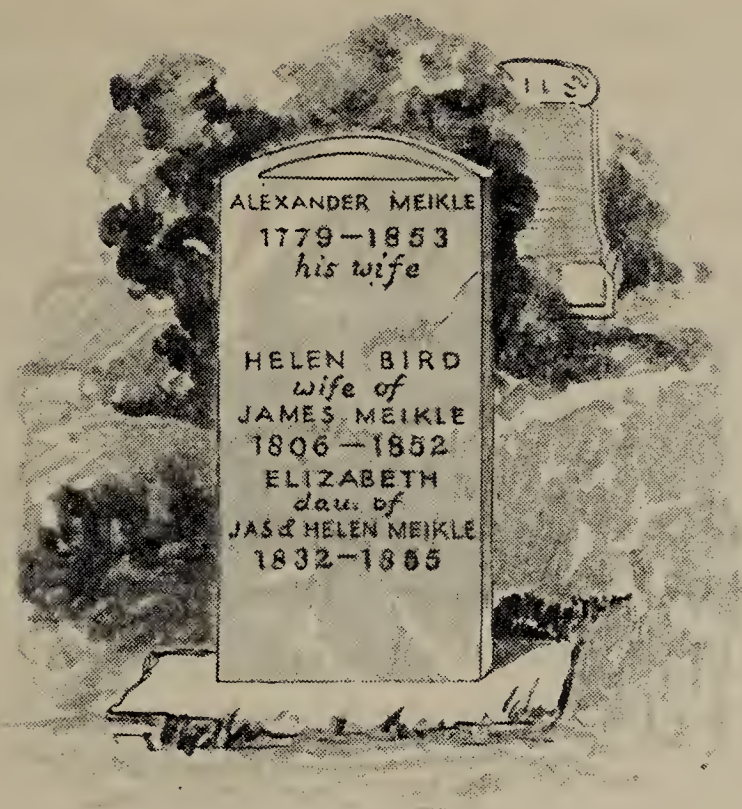 ALEXANDER MEIKLE
1779-1853
his wife
HELEN BIRD
wife of
JAMES MEIKLE
1806-1852
ELIZABETH
dau. of
JAS & HELEN MEIKLE
1832-1865